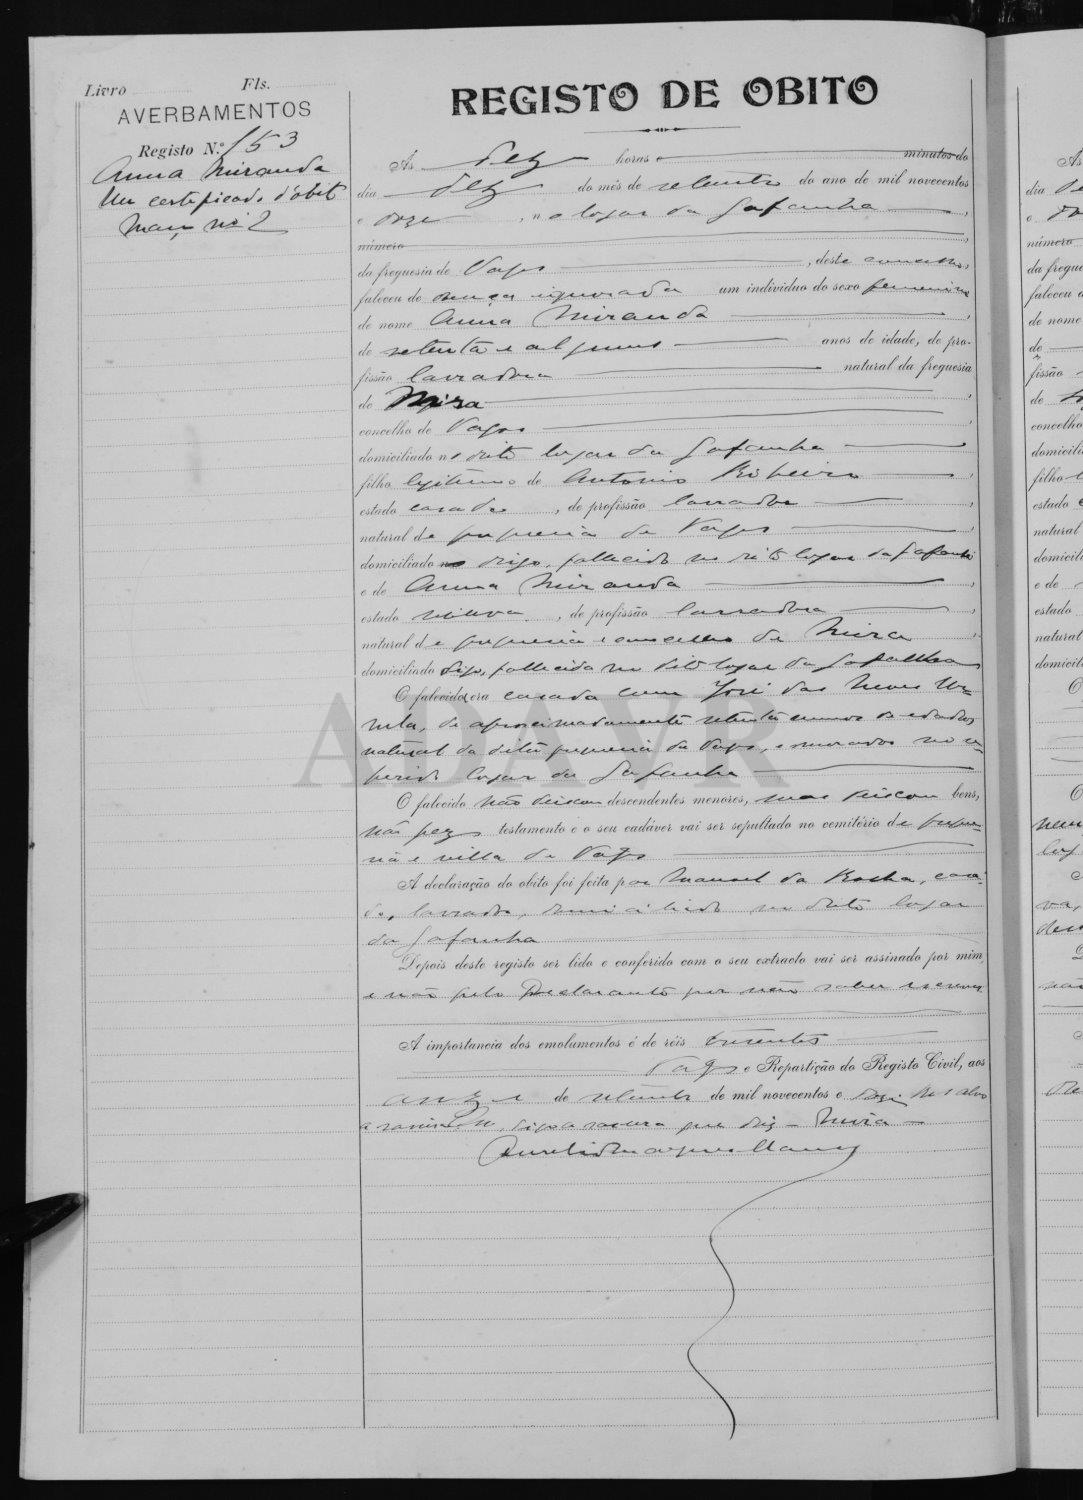 Livro Fls.
AVERBAMENTOS
Registo N.º 153
Anna Miranda
Um certificado d'obito
Março nº 2
REGISTO DE OBITO
Ás dez horas e minutos do
dia dez do mês de setembro do ano de mil novecentos
e doze, no logar da Gafanha,
número
da freguesia de Vagos, deste concelho,
faleceu de doença ignorada um individuo do sexo femenino
de nome Anna Miranda,
de setenta e alguns anos de idade, de pro-
fissão lavradora natural da freguesia
de Mira,
concelho de Vagos
domiciliado no dito logar da Gafanha
filho legitimo de Antonio Ribeiro,
estado casado, de profissão lavrador,
natural de freguesia de Vagos
domiciliado no digo, fallecido no dito logar da Gafanha
e de Anna Miranda,
estado viuva, de profissão lavradora,
natural de freguesia e concelho de Mira
domiciliado digo, fallecida no dito logar da Gafanha
O falecido era casada com José das Neves
de aproximadamente setenta annos de edade,
natural da dita freguesia de Vagos, e morador no re-
ferido logar da Gafanha
O falecido não deixou descendentes menores, mas deixou bens,
não fez testamento e o seu cadáver vai ser sepultado no cemitério de fregue-
sia e villa de Vagos
A declaração do obito foi feita por Manuel da Rocha, casa-
do, lavrador, domiciliado no dito logar
da Gafanha
Depois deste registo ser lido e conferido com o seu extracto vai ser assinado por mim,
e não pelo Declarante por não saber escrever
A importancia dos emolumentos é de réis trezentos
Vagos e Repartição do Registo Civil, aos
onze de setembro de mil novecentos e doze. Resalvo
a rasura que diz - Mira -